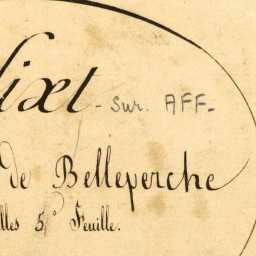 ixt - Sur. AFF-
de Belleperche
lles 5e Feuille.